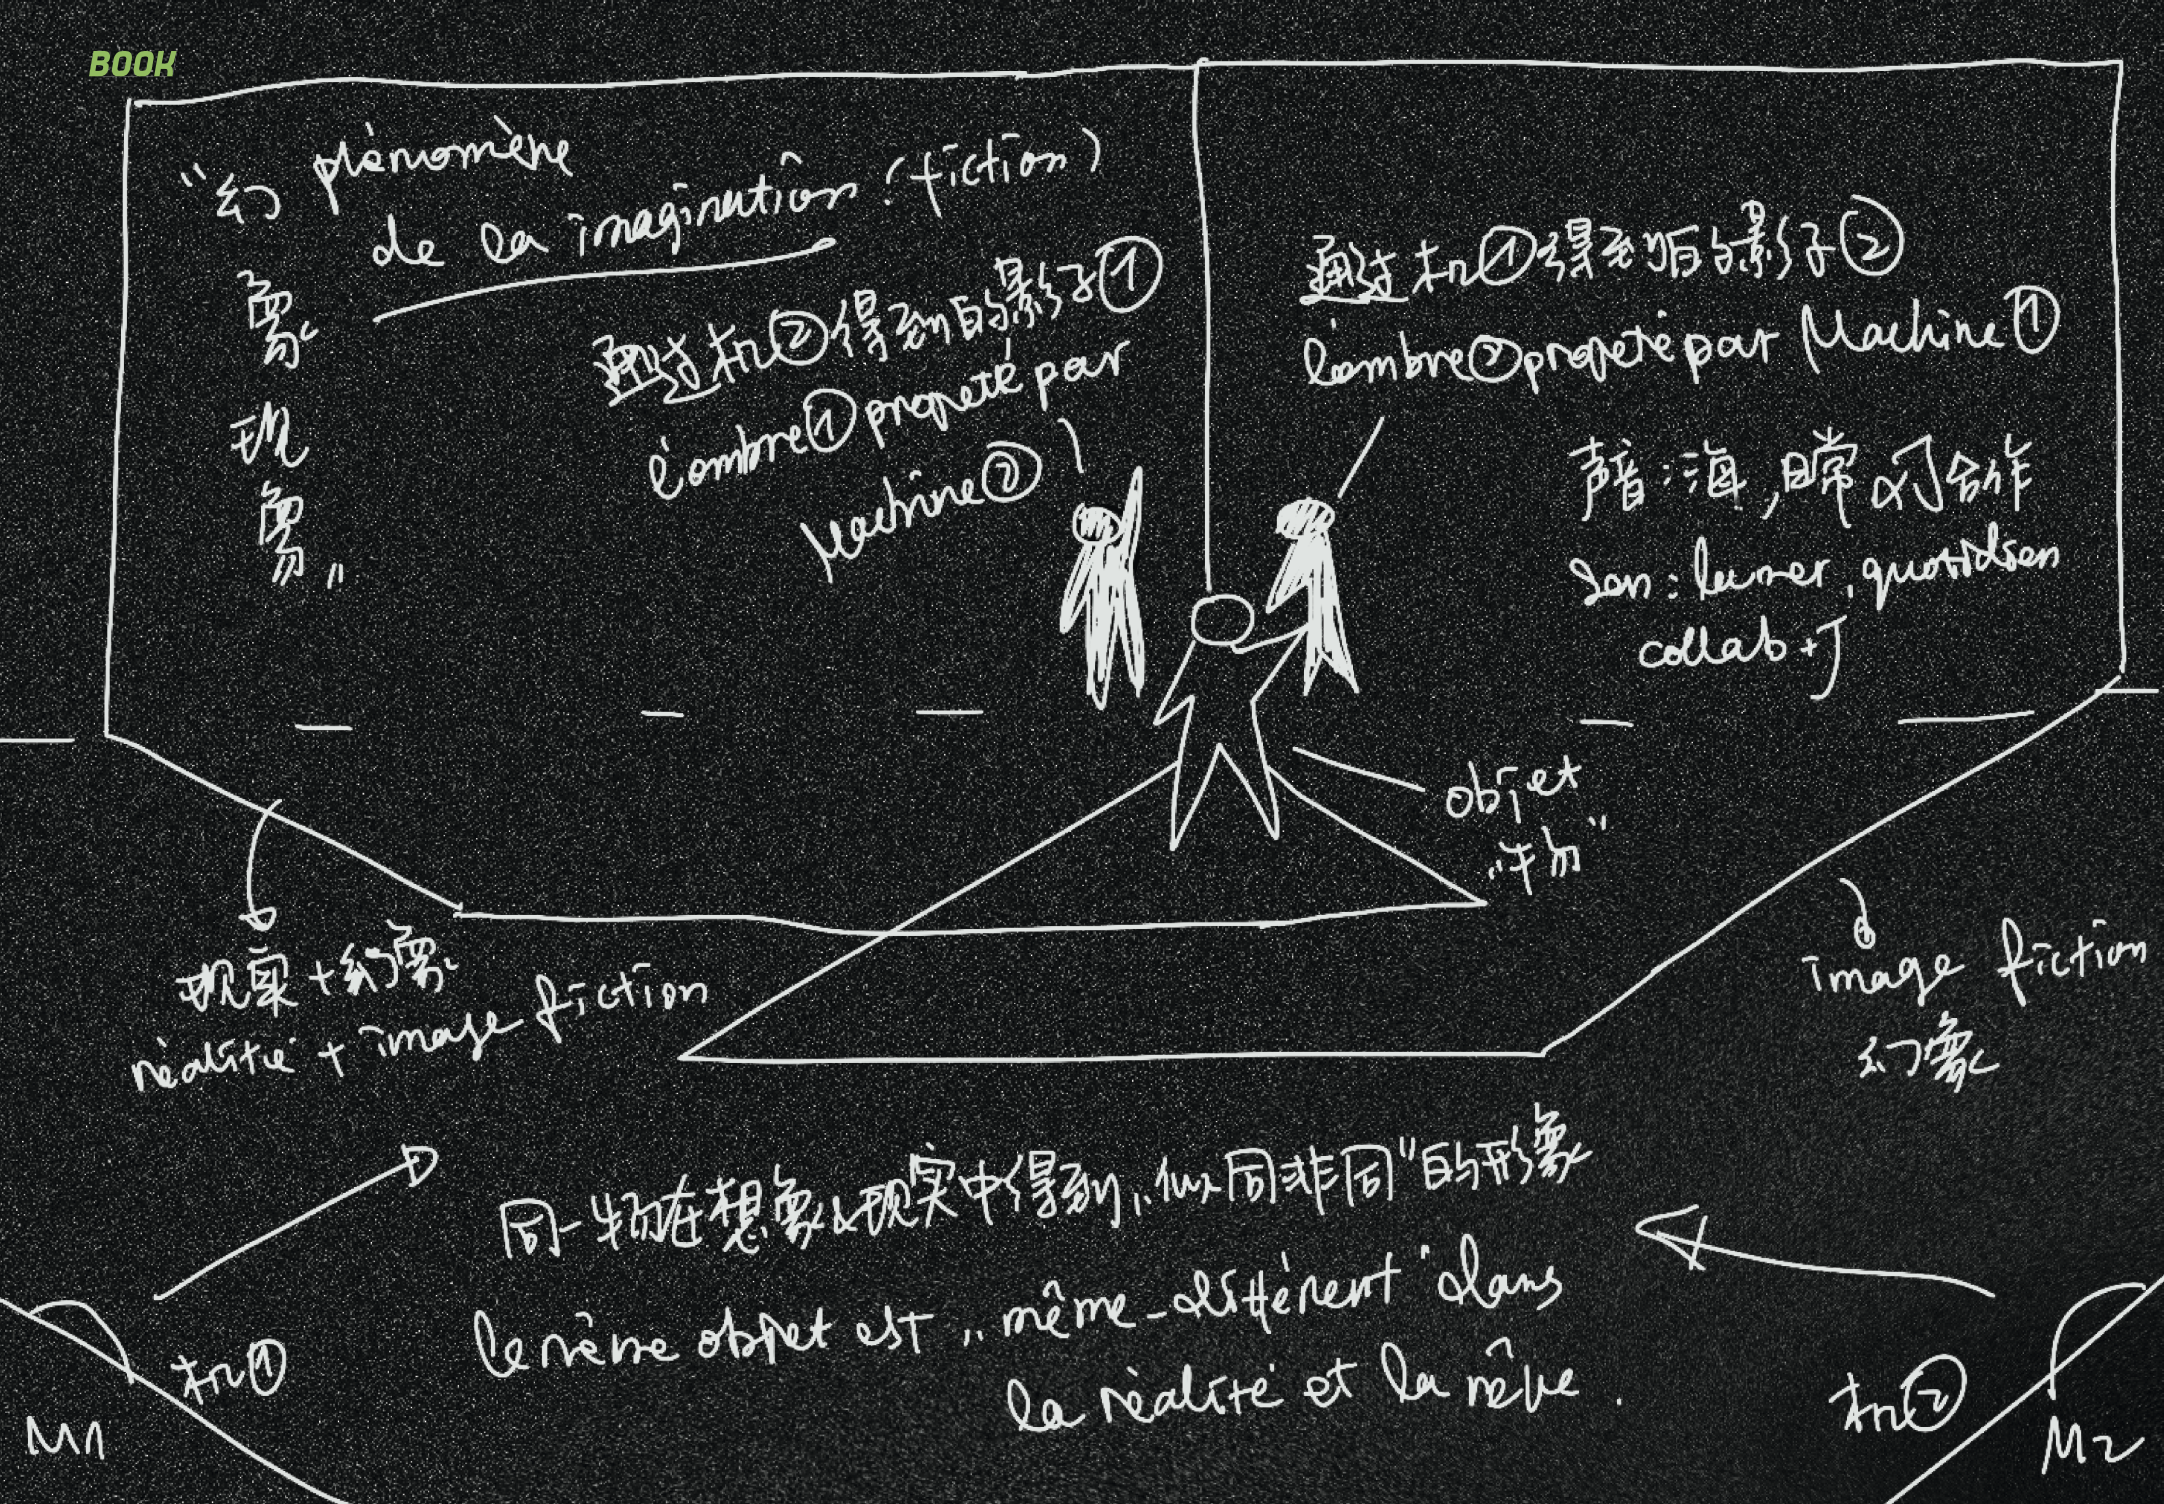 BOOK
“幻象现象”
phénomène
de la imagination (fiction)
通过机②得到的影子①
l'ombre① projeté par
Machine②
通过机①得到的影子②
l'ombre② projeté par Machine①
声音:海,日常
合作
Son: la mer, quotidien
collab + J
objet
“物”
现实+幻象
réalitié + image fiction
image fiction
幻象
同一物在想象&现实中得到“似同非同”的形象
le même objet est “même-différent” dans
la réalité et la rêve.
机①
M1
机②
M2